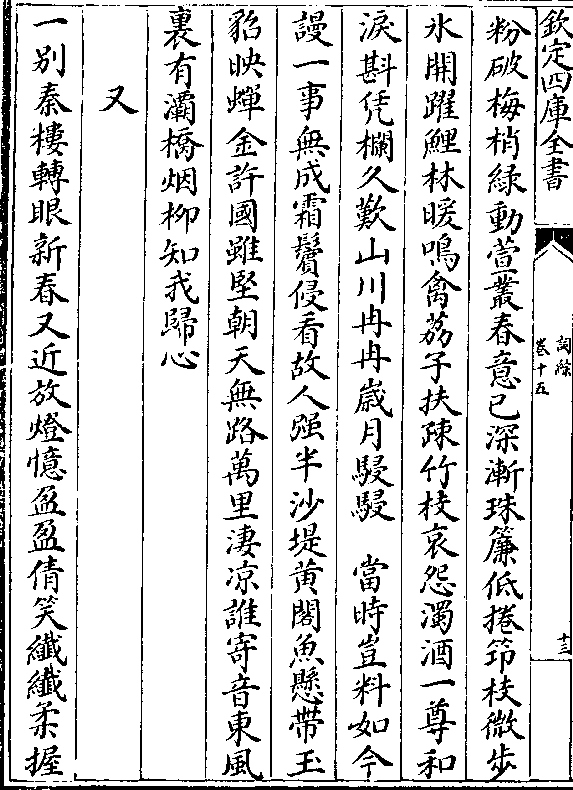 欽定四庫全書
詞綜
卷十五
十三
粉破梅梢綠動萱叢春意已深漸珠簾低捲筇枝微步
氷開躍鯉林暖鳴禽荔子扶疎竹枝哀怨濁酒一尊和
淚斟凭欄久歎山川冉冉歲月駸駸　當時豈料如今
謾一事無成霜鬢侵看故人强半沙堤黄閣魚懸帶玉
貂映蟬金許國雖堅朝天無路萬里凄凉誰寄音東風
裏有灞橋烟柳知我歸心
又
一别秦樓轉眼新春又近放燈憶盈盈倩笑纖纖柔握